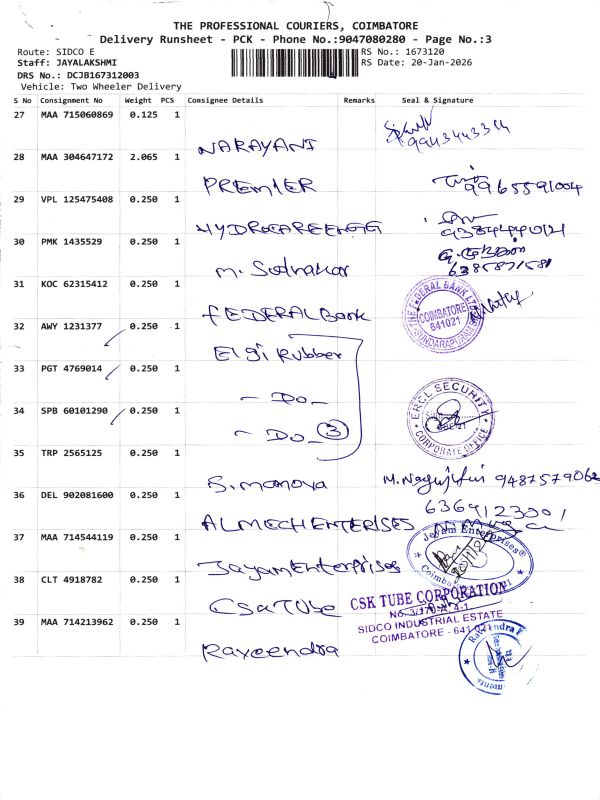 THE PROFESSIONAL COURIERS, COIMBATORE
Delivery Runsheet - PCK - Phone No.:9047080280 - Page No.:3
Route: SIDCO E
RS No.: 1673120
Staff: JAYALAKSHMI
RS Date: 20-Jan-2026
DRS No.: DCJB167312003
Vehicle: Two Wheeler Delivery
S No Consignment No Weight PCS Consignee Details Remarks Seal & Signature
27 MAA 715060869 0.125 1
NARAYANI
28 MAA 304647172 2.065 1
PREMIER 9965591004
29 VPL 125475408 0.250 1
HYDROCAREENGG
30 PMK 1435529 0.250 1
M. Sudhakar 6385871581
31 KOC 62315412 0.250 1
FEDERAL Bank
THE FEDERAL BANK LTD
COIMBATORE
641021
SUNDARAPURAM
32 AWY 1231377 0.250 1
Elgi Rubber
33 PGT 4769014 0.250 1
- DO -
34 SPB 60101290 0.250 1
- DO - 3
ERCL SECURITY
CORPORATE OFFICE
35 TRP 2565125 0.250 1
S. manoya 9487579062
36 DEL 902081600 0.250 1
6369123001
ALMECH ENTERISES
37 MAA 714544119 0.250 1
Jayam Enterprises
Jeyam Enterprises
Coimbatore
38 CLT 4918782 0.250 1
CSK TUBE
CSK TUBE CORPORATION
SIDCO INDUSTRIAL ESTATE
COIMBATORE - 641 021
39 MAA 714213962 0.250 1
Raveendra